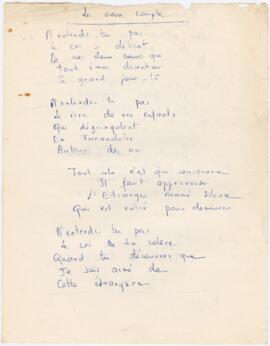 Le vieux couple
N'entends-tu pas
Le cri si délicat
De nos deux cœurs qui
tout émus disaient
Ce grand jour-là
N'entends-tu pas
Le rire de nos enfants
Qui dégringolent
En farandoles
Autour de moi
Tout cela n'est que
Il faut apprivoiser
L'Etranger nommé silence
Qui est entré pour demeurer
N'entends-tu pas
Le cri de ta colère
Quand tu découvres que
Je suis aimé de
Cette étrangère